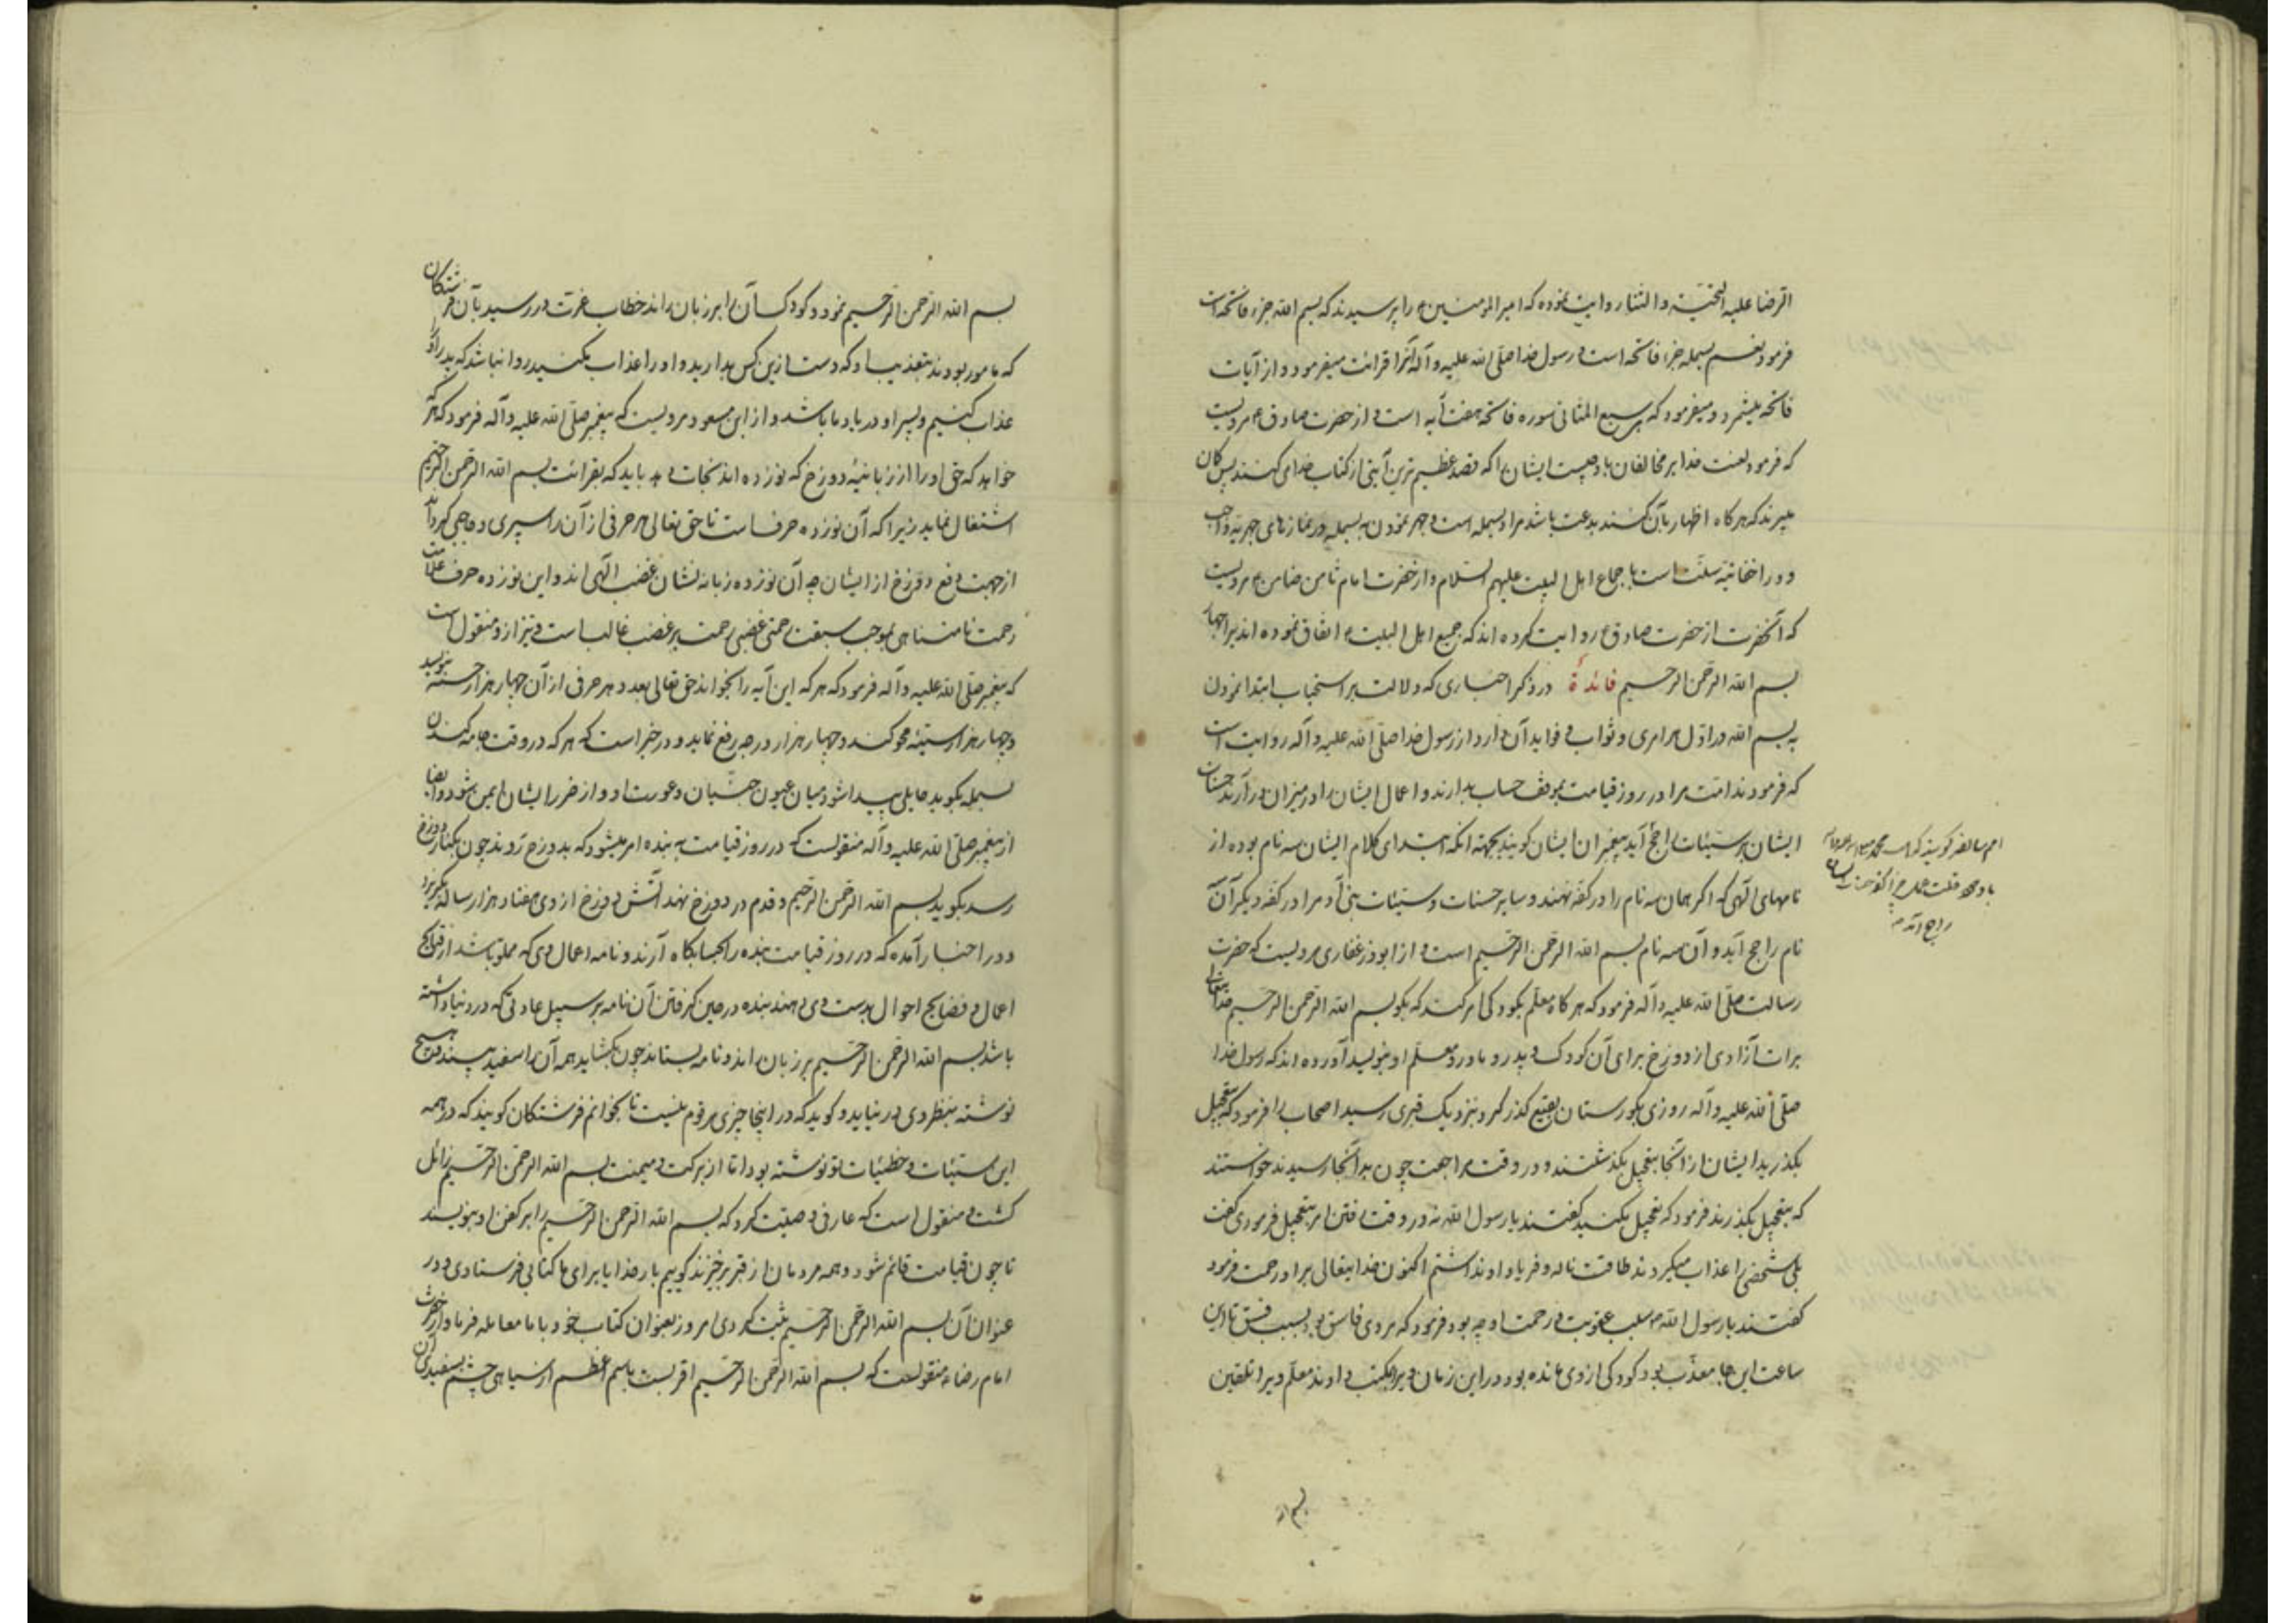 الرضا علیه التحیّة و الثناء روایت نموده که امیر المومنین ع را پرسیدند که بسم الله جزء فاتحه است
فرمود نعم بسمله جزء فاتحه است و رسول خدا صلّی الله علیه و آله آنرا قرائت میفرمود و از آیات
فاتحه میشمرد و میفرمود که سبع المثانی سوره فاتحة هفت آیه است و از حضرت صادق ع مرویست
که فرمود لعنت خدا بر مخالفان باد چیست ایشان را که قصد عظیم ترین آیتی از کتاب خدای کنند پس کان
میبرند که هر کاه اظهار بآن کنند بدعت باشد مراد بسمله است و جهر نمودن به بسمله در نمازهای جهریه واجب
و در اخفاتیه سنّت است باجماع اهل البیت علیهم السّلام و از حضرت امام ثامن ضامن ع مرویست
که آنحضرت از حضرت صادق ع روایت کرده اند که جمیع اهل البیت ع اتفاق نموده اند بر اجهار
بسم الله الرحمن الرحیم فائدة در ذکر اخباری که دلالت بر استحباب ابتدا نمودن
به بسم الله در اوّل هر امری و ثواب و فواید آن دارد از رسول خدا صلّی الله علیه و آله روایت است
که فرمودند امّت مرا در روز قیامت بموقف حساب بدارند و اعمال ایشان را در میزان در آرند حسنات
ایشان بر سیّئات راجح آید پیغمبران ایشان کویند بجهته انکه ابتدای کلام ایشان سه نام بوده از
نامهای آلهی که اکر همان سه نام را در کفه نهند و سایر حسنات و سیّئات بنی آدم را در کفه دیکر آن سه
نام راجح آید و آن سه نام بسم الله الرّحمن الرّحیم است و از ابوذر غفاری مرویست که حضرت
رسالت صلّی الله علیه و آله فرمود که هر کاه معلّم بکودکی امر کند که بکو بسم الله الرّحمن الرّحیم خدایتعالی
برات آزادی از دوزخ برای آن کودک و پدر و مادر و معلّم او بنویسد آورده اند که رسول خدا
صلّی الله علیه و آله روزی بکورستان بقیع کذر کرد و نزدیک قبری رسید اصحاب را فرمود که بتعجیل
بکذرید ایشان از آنجا بتعجیل بکذشتند و در وقت مراجعت چون به آنجا رسیدند خواستند
که بتعجیل بکذرند فرمود که تعجیل مکنید کفتند یا رسول الله نه در وقت رفتن امر بتعجیل فرمودی کفت
بلی شخصی را عذاب میکردند طاقت ناله و فریاد او نداشتم اکنون خدایتعالی بر او رحمت فرمود
کفتند یا رسول الله سبب عقوبت و رحمت او چه بود فرمود که مردی فاسق بود بسبب فسق تا این
ساعت این جا معذّب بود کودکی از وی مانده بود در این زمان ویرا بمکتب دادند معلّم ویرا تلقین
راجح آید
بسم الله الرّحمن الرّحیم نمود و کودک آن را بر زبان راند خطاب عزّت در رسید بآن فرشتکان
که مامور بودند بتعذیب او که دست ازین کس بدارید و او را عذاب مکنید روا نباشد که پدر را
عذاب کنیم و پسر او در یاد ما باشد و از ابن مسعود مرویست که پیغمبر صلّی الله علیه و آله فرمود که هر که
خواهد که حق او را از زبانیهٔ دوزخ که نوزده اند نجات دهد باید که بقرائت بسم الله الرّحمن الرّحیم
اشتغال نماید زیرا که آن نوزده حرف است تا حق تعالی هر حرفی از آن را سپری و حاجبی کرداند
از جهت دفع دوزخ از ایشان چه آن نوزده زبانه نشان غضب الهی اند و این نوزده حرف علامت
رحمت نامتناهی بموجب سبقت رحمتی غضبی رحمت بر غضب غالب است و نیز از و منقول است
که پیغمبر صلّی الله علیه و آله فرمود که هر که این آیه را بخواند حق تعالی بعدد هر حرفی از آن چهار هزار حسنه بنویسد
و چهار هزار سیئه محو کند و چهار هزار درجه رفع نماید و در خبر است که هر که در وقت جامه کندن
بسمله بکوید حایلی پیدا شود میان عیون جنّیان و عورت او و از ضرر ایشان ایمن شود و ایضا
از پیغمبر صلّی الله علیه و آله منقولست که در روز قیامت به بنده امر میشود که بدوزخ رَوَد چون بکنار دوزخ
رسد بکوید بسم الله الرّحمن الرّحیم و قدم در دوزخ نهد آتش دوزخ از وی هفتاد هزار ساله بکریزد
و در اخبار آمده که در روز قیامت بنده را بحسابکاه آرند و نامه اعمال وی که مملو باشد از قبایح
اعمال و فضایح احوال بدست وی دهند بنده در حین کرفتن آن نامه بر سبیل عادتی که در دنیا داشته
باشد بسم الله الرّحمن الرّحیم بر زبان راند و نامه بستاند چون بکشاید همه آن را سفید بیند و هیچ
نوشته بنظر وی در نیاید و کوید که در اینجا چیزی مرقوم نیست تا بخوانم فرشتکان کویند که در همه
این سیّئات و خطیئات تو نوشته بود امّا از برکت و میمنت بسم الله الرّحمن الرّحیم زائل
کشت و منقول است که عارفی وصیّت کرد که بسم الله الرّحمن الرّحیم را بر کفن او بنویسند
تا چون قیامت قائم شود و همه مردمان از قبر برخیزند کوییم بار خدایا برای ما کتابی فرستادی و در
عنوان آن بسم الله الرّحمن الرّحیم ثبت کردی امروز بعنوان کتاب خود با ما معامله فرما و از حضرت
امام رضا ع منقولست که بسم الله الرّحمن الرّحیم اقربست باسم اعظم از سیاهی چشم بسفیدی آن